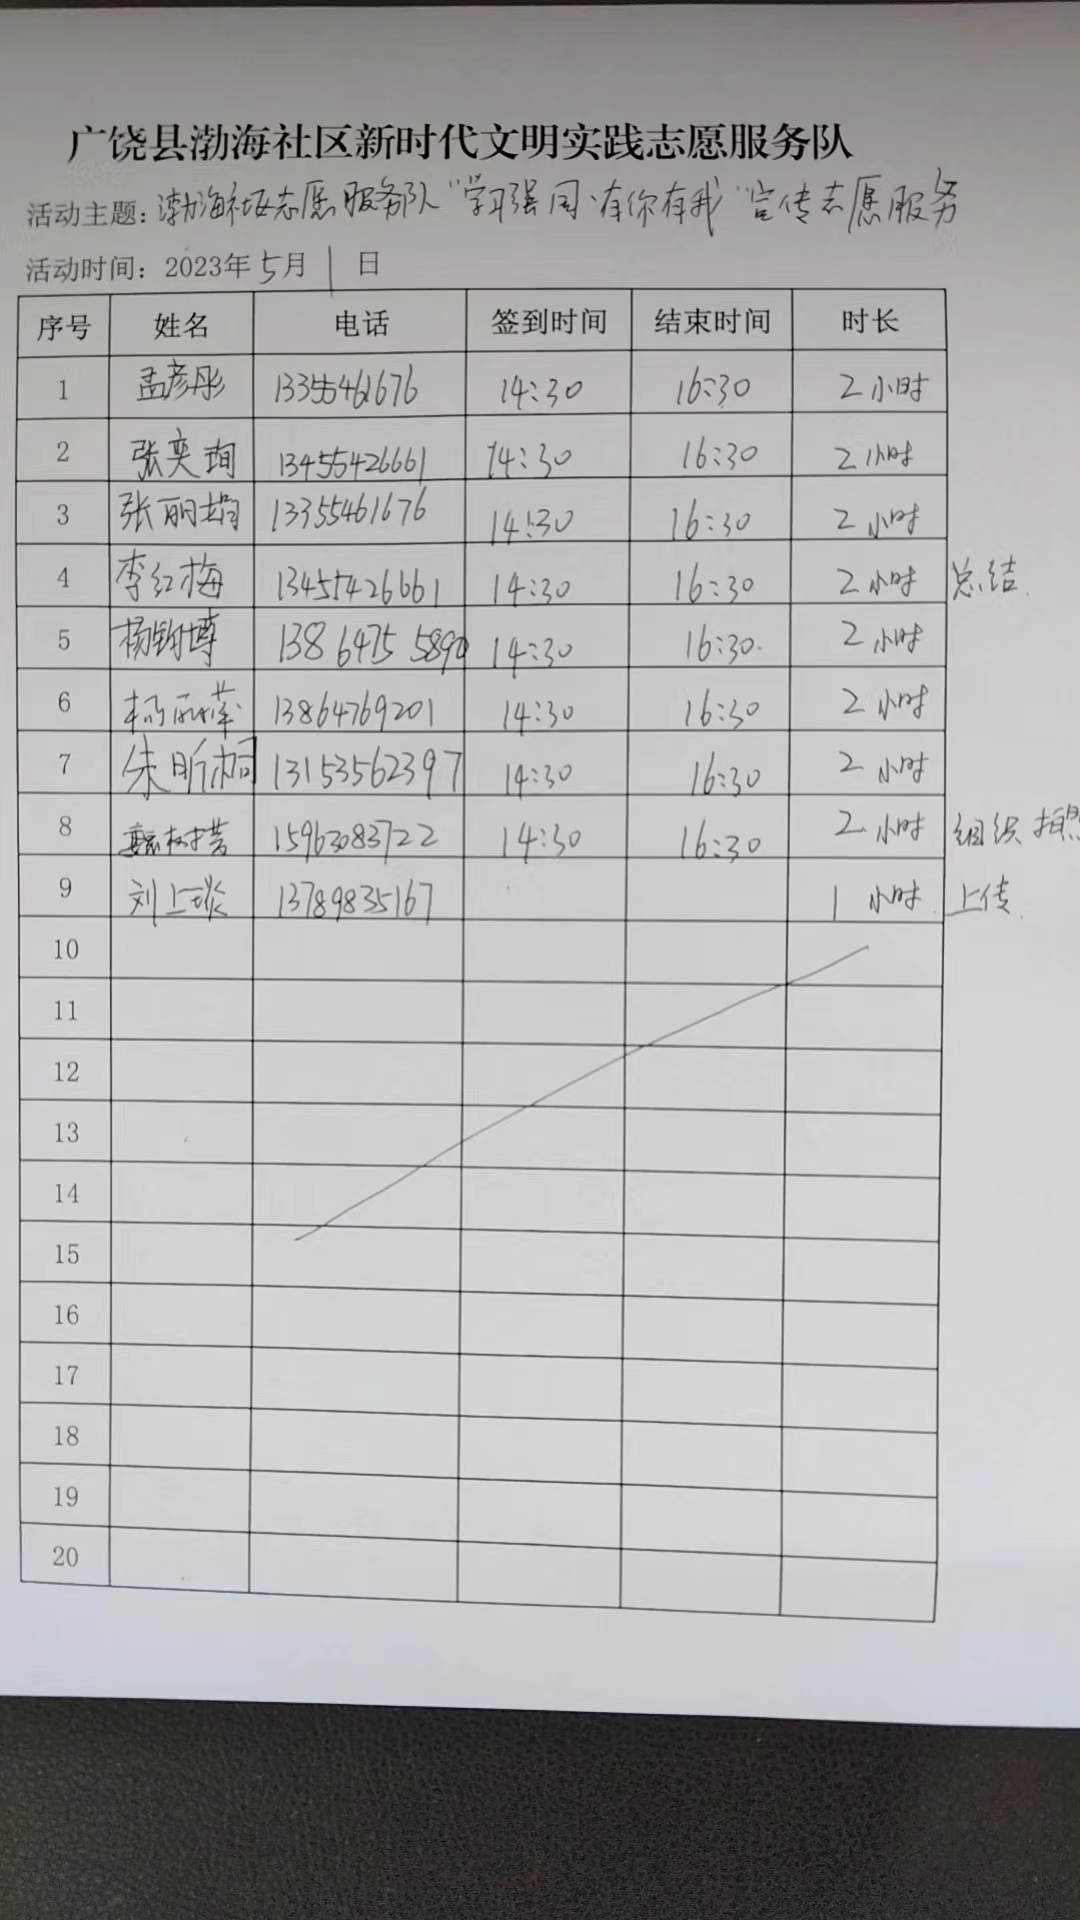 广饶县渤海社区新时代文明实践志愿服务队
活动主题：渤海社区志愿服务队“学习强国·有你有我”宣传志愿服务
活动时间：2023年5月1日
序号 姓名 电话 签到时间 结束时间 时长
1 孟彦彤 13355461676 14:30 16:30 2小时
2 张奕珣 13455426661 14:30 16:30 2小时
3 张丽娟 13355461676 14:30 16:30 2小时
4 李红梅 13455426661 14:30 16:30 2小时 总结
5 杨钧博 13864755890 14:30 16:30 2小时
6 杨丽萍 13864769201 14:30 16:30 2小时
7 朱昕桐 13153562397 14:30 16:30 2小时
8 15963083722 14:30 16:30 2小时 组织 拍照
9 刘上琰 13789835167 1小时 上传
10
11
12
13
14
15
16
17
18
19
20